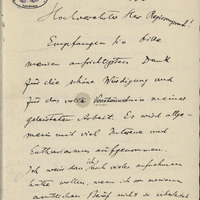 Hochverehrter Herr Regierungsrat!
Empfangen Sie bitte
meinen aufrichtigsten Dank
für die schöne Würdigung und
für das volle Verständnis meiner
geleisteten Arbeit. Es wird
mit viel Interesse und
Enthusiasmus aufgenommen.
Ich weiß daß ich viel aufnehmen
hätte sollen, wenn ich von meinem
Beruf nicht so